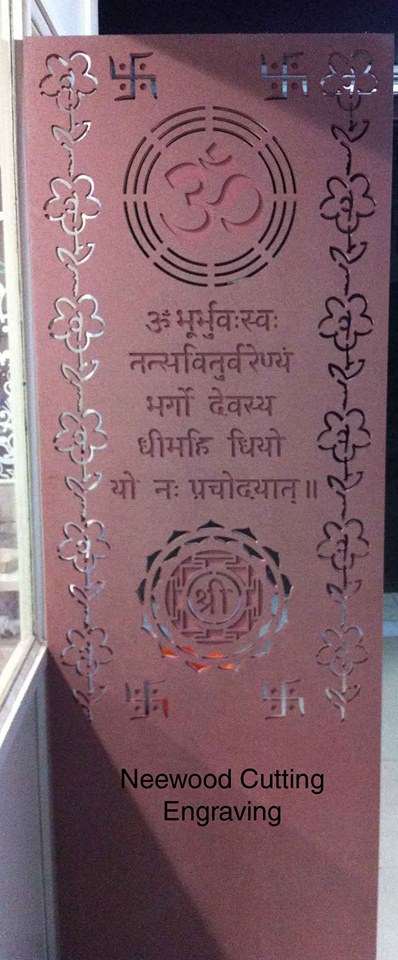 ॐ
ॐ भूर्भुवःस्वः
तत्सवितुर्वरेण्यं
भर्गो देवस्य
धीमहि धियो
यो नः प्रचोदयात् ॥
श्री
Neewood Cutting
Engraving